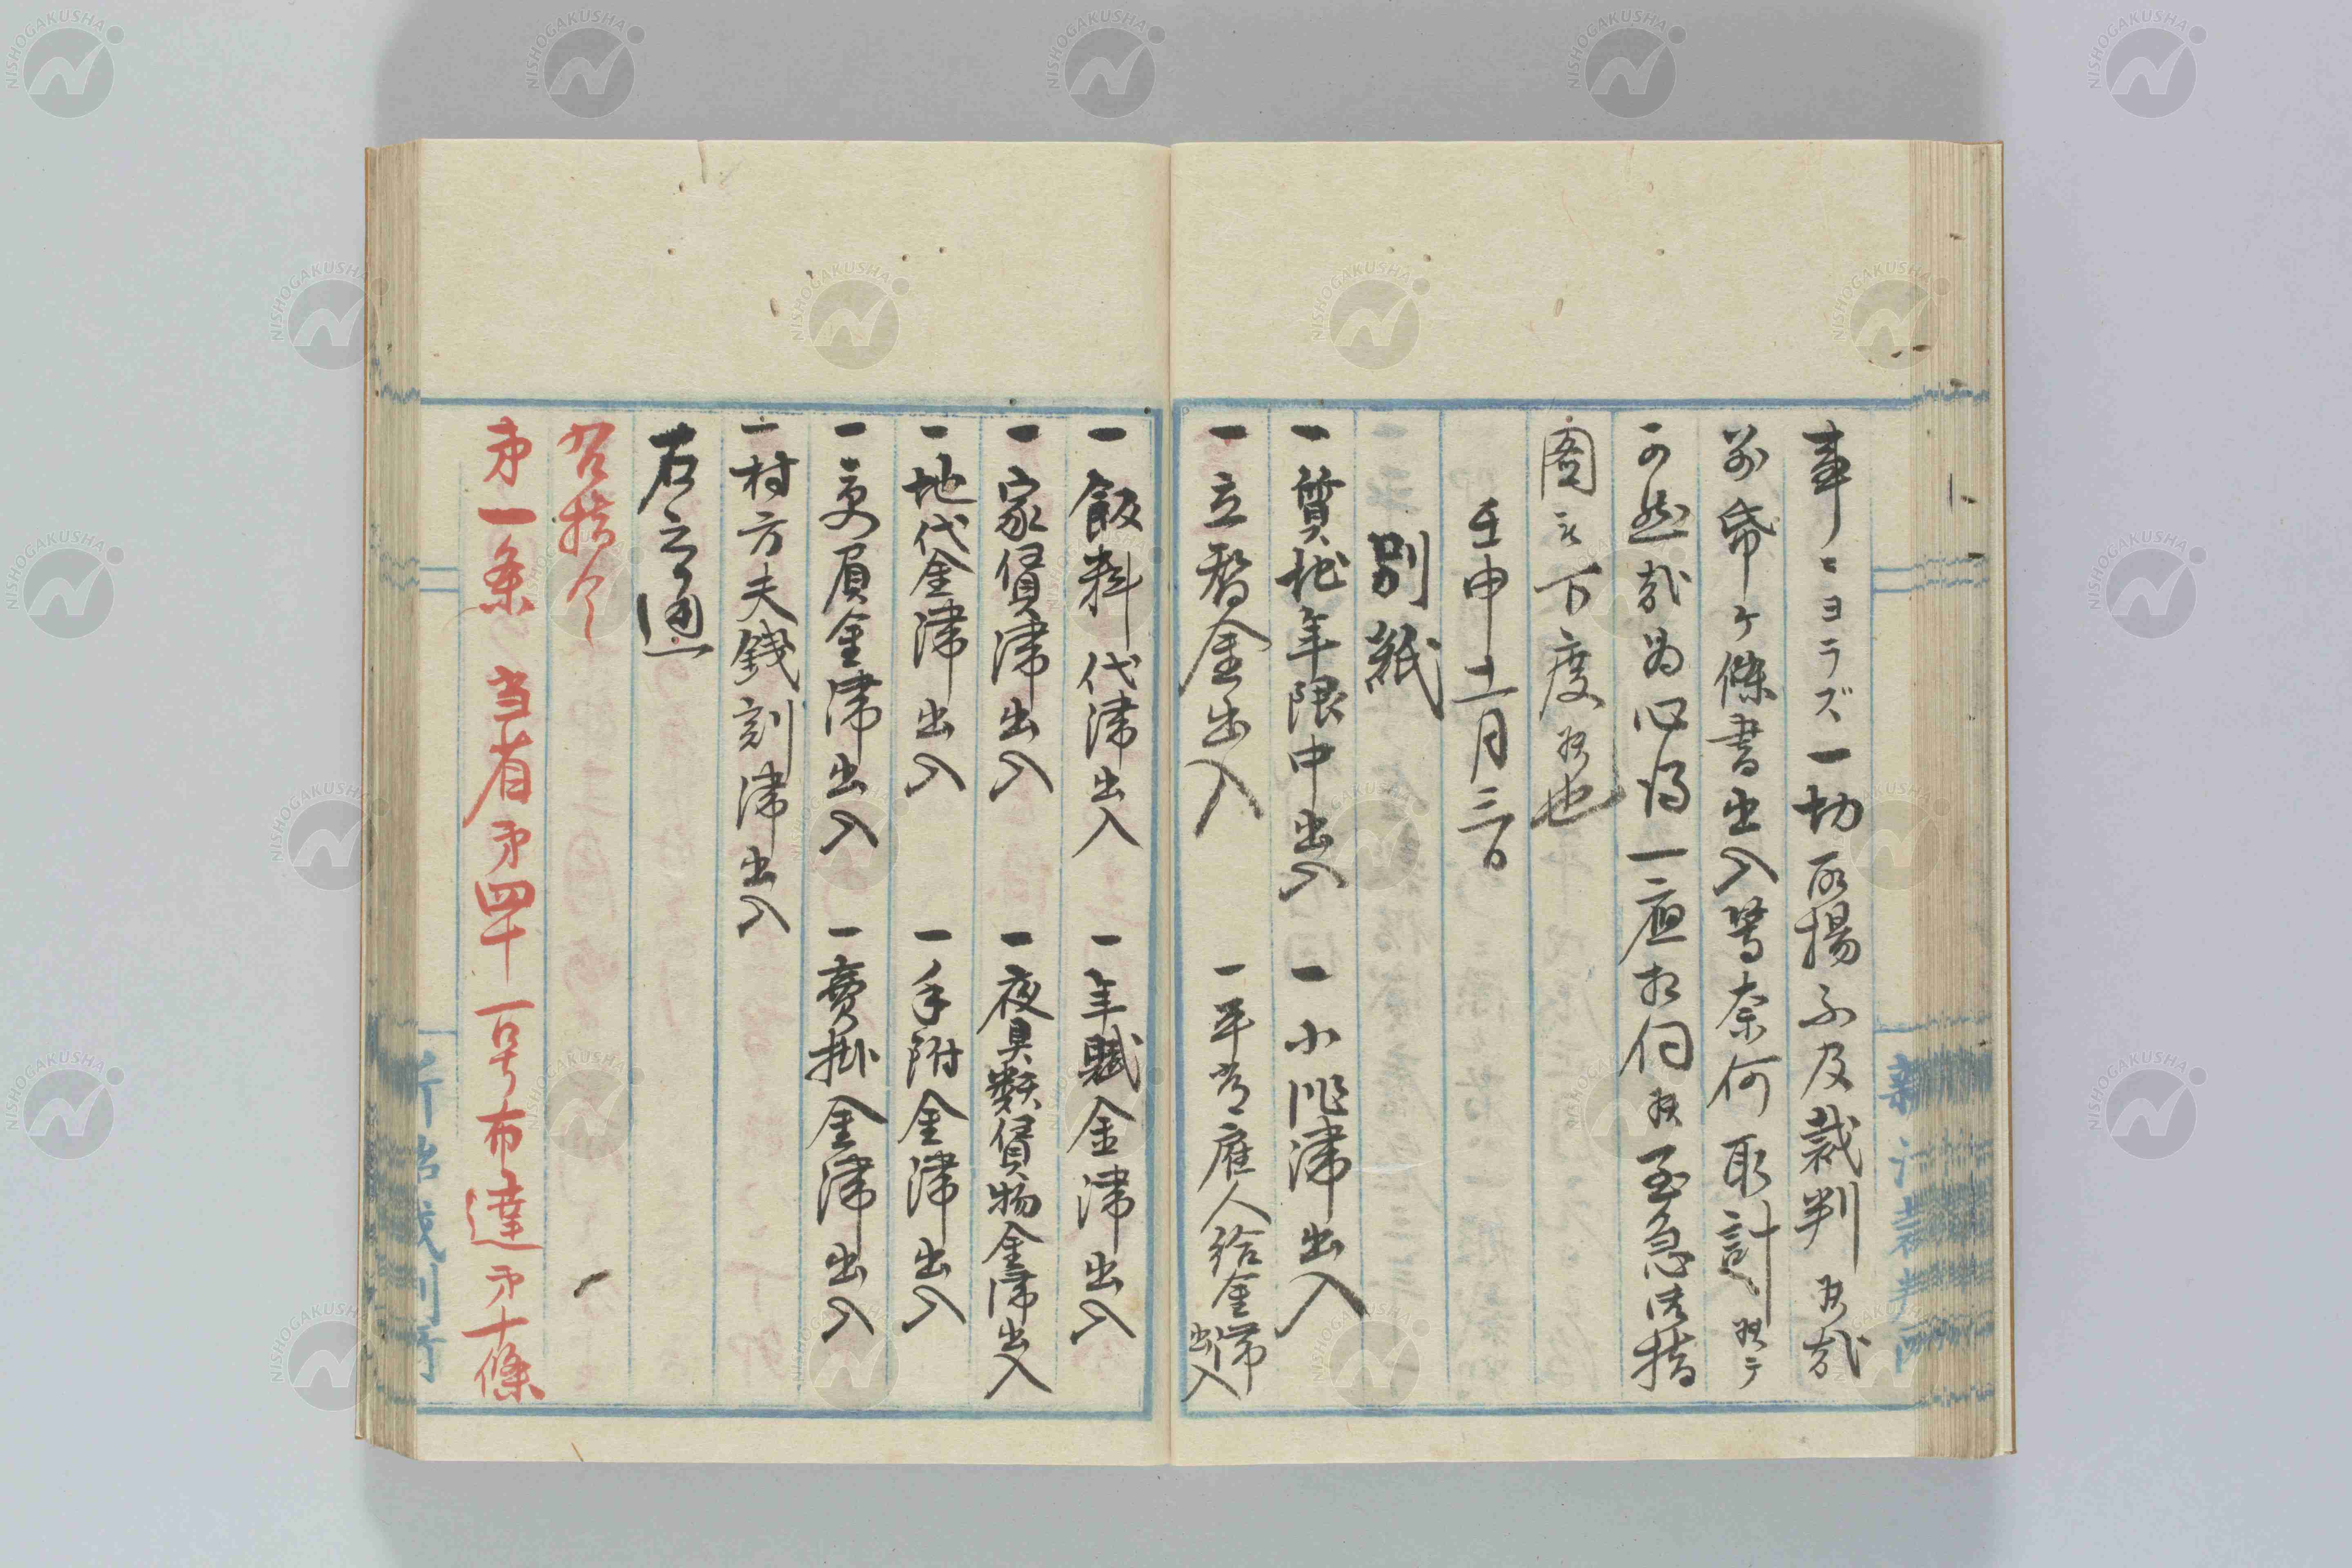 事ニヨラズ一切取揚不及裁判候哉
前帋ケ條書出入等奈何取計候テ
可然哉為心得一應相伺候至急御指
圖被下度候也
壬申十一月三日
別紙
一質地年限中出入 一小作滞出入
一立替金出入 一平常雇人給金滞出入
一飯料代滞出入 一年賦金滞出入
一家賃滞出入 一夜具類賃物金滞出入
一地代金滞出入 一手附金滞出入
一受負金滞出入 一賣掛金滞出入
一村方夫錢割滞出入
右之通
御指令
第一条 当省第四十一号布達第十條